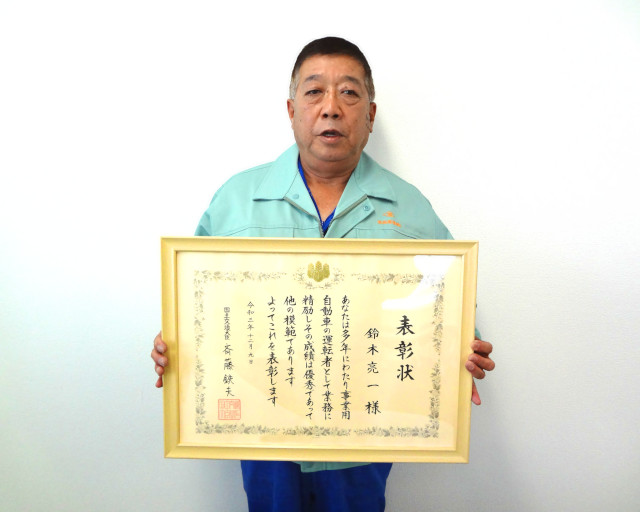 表彰状
鈴木亮一様
あなたは多年にわたり事業用
自動車の運転者として業務に
精励しその成績は優秀であって
他の模範であります
よってこれを表彰します
令和三年十二月九日
国土交通大臣 斉藤鉄夫